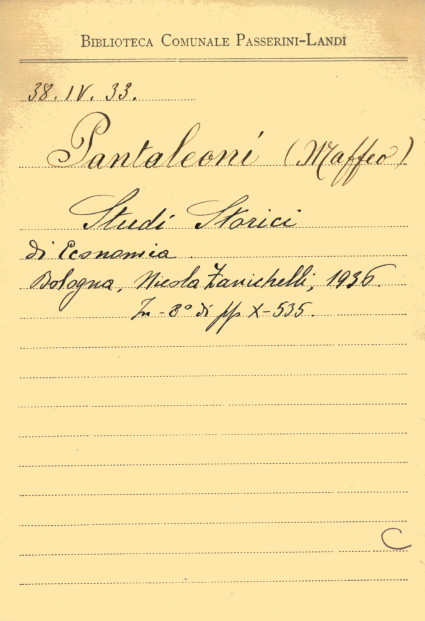 BIBLIOTECA COMUNALE PASSERINI-LANDI
38. IV. 33.
Pantaleoni (Maffeo)
Studi Storici
di Economia
Bologna, Nicola Zanichelli, 1936
In-8° di pp X-535.
C